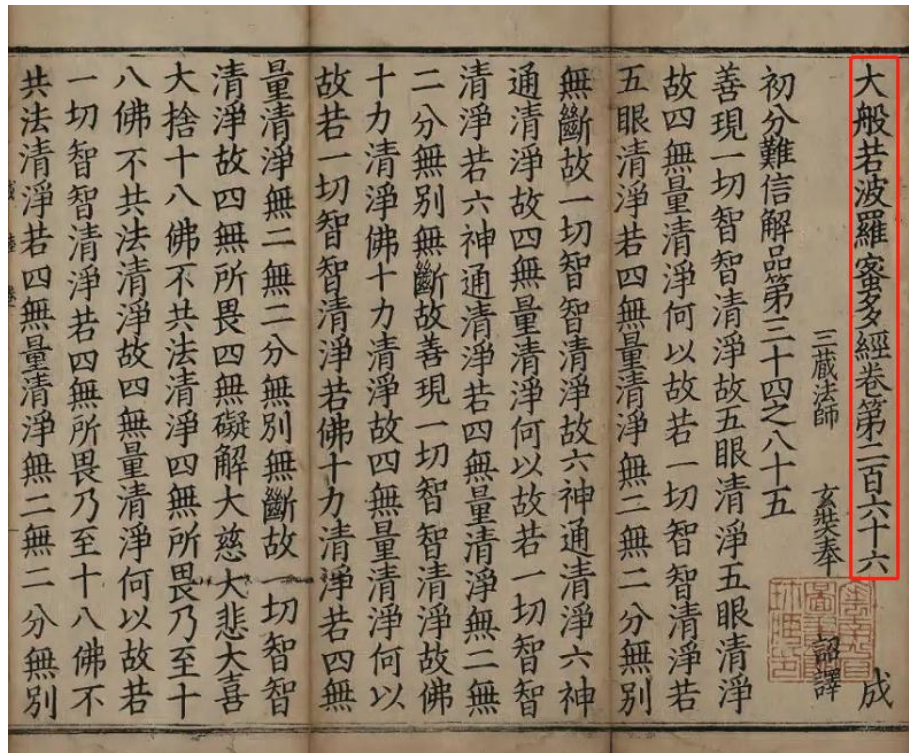 大般若波羅蜜多經卷第二百六十六 成
三蔵法師 玄奘奉 詔譯
初分難信解品第三十四之八十五
善現一切智智清淨故五眼清淨五眼清淨
故四無量清淨何以故若一切智智清淨若
五眼清淨若四無量清淨無二無二分無別
無斷故一切智智清淨故六神通清淨六神
通清淨故四無量清淨何以故若一切智智
清淨若六神通清淨若四無量清淨無二無
二分無別無斷故善現一切智智清淨故佛
十力清淨佛十力清淨故四無量清淨何以
故若一切智智清淨若佛十力清淨若四無
量清淨無二無二分無別無斷故一切智智
清淨故四無所畏四無礙解大慈大悲大喜
大捨十八佛不共法清淨四無所畏乃至十
八佛不共法清淨故四無量清淨何以故若
一切智智清淨若四無所畏乃至十八佛不
共法清淨若四無量清淨無二無二分無別